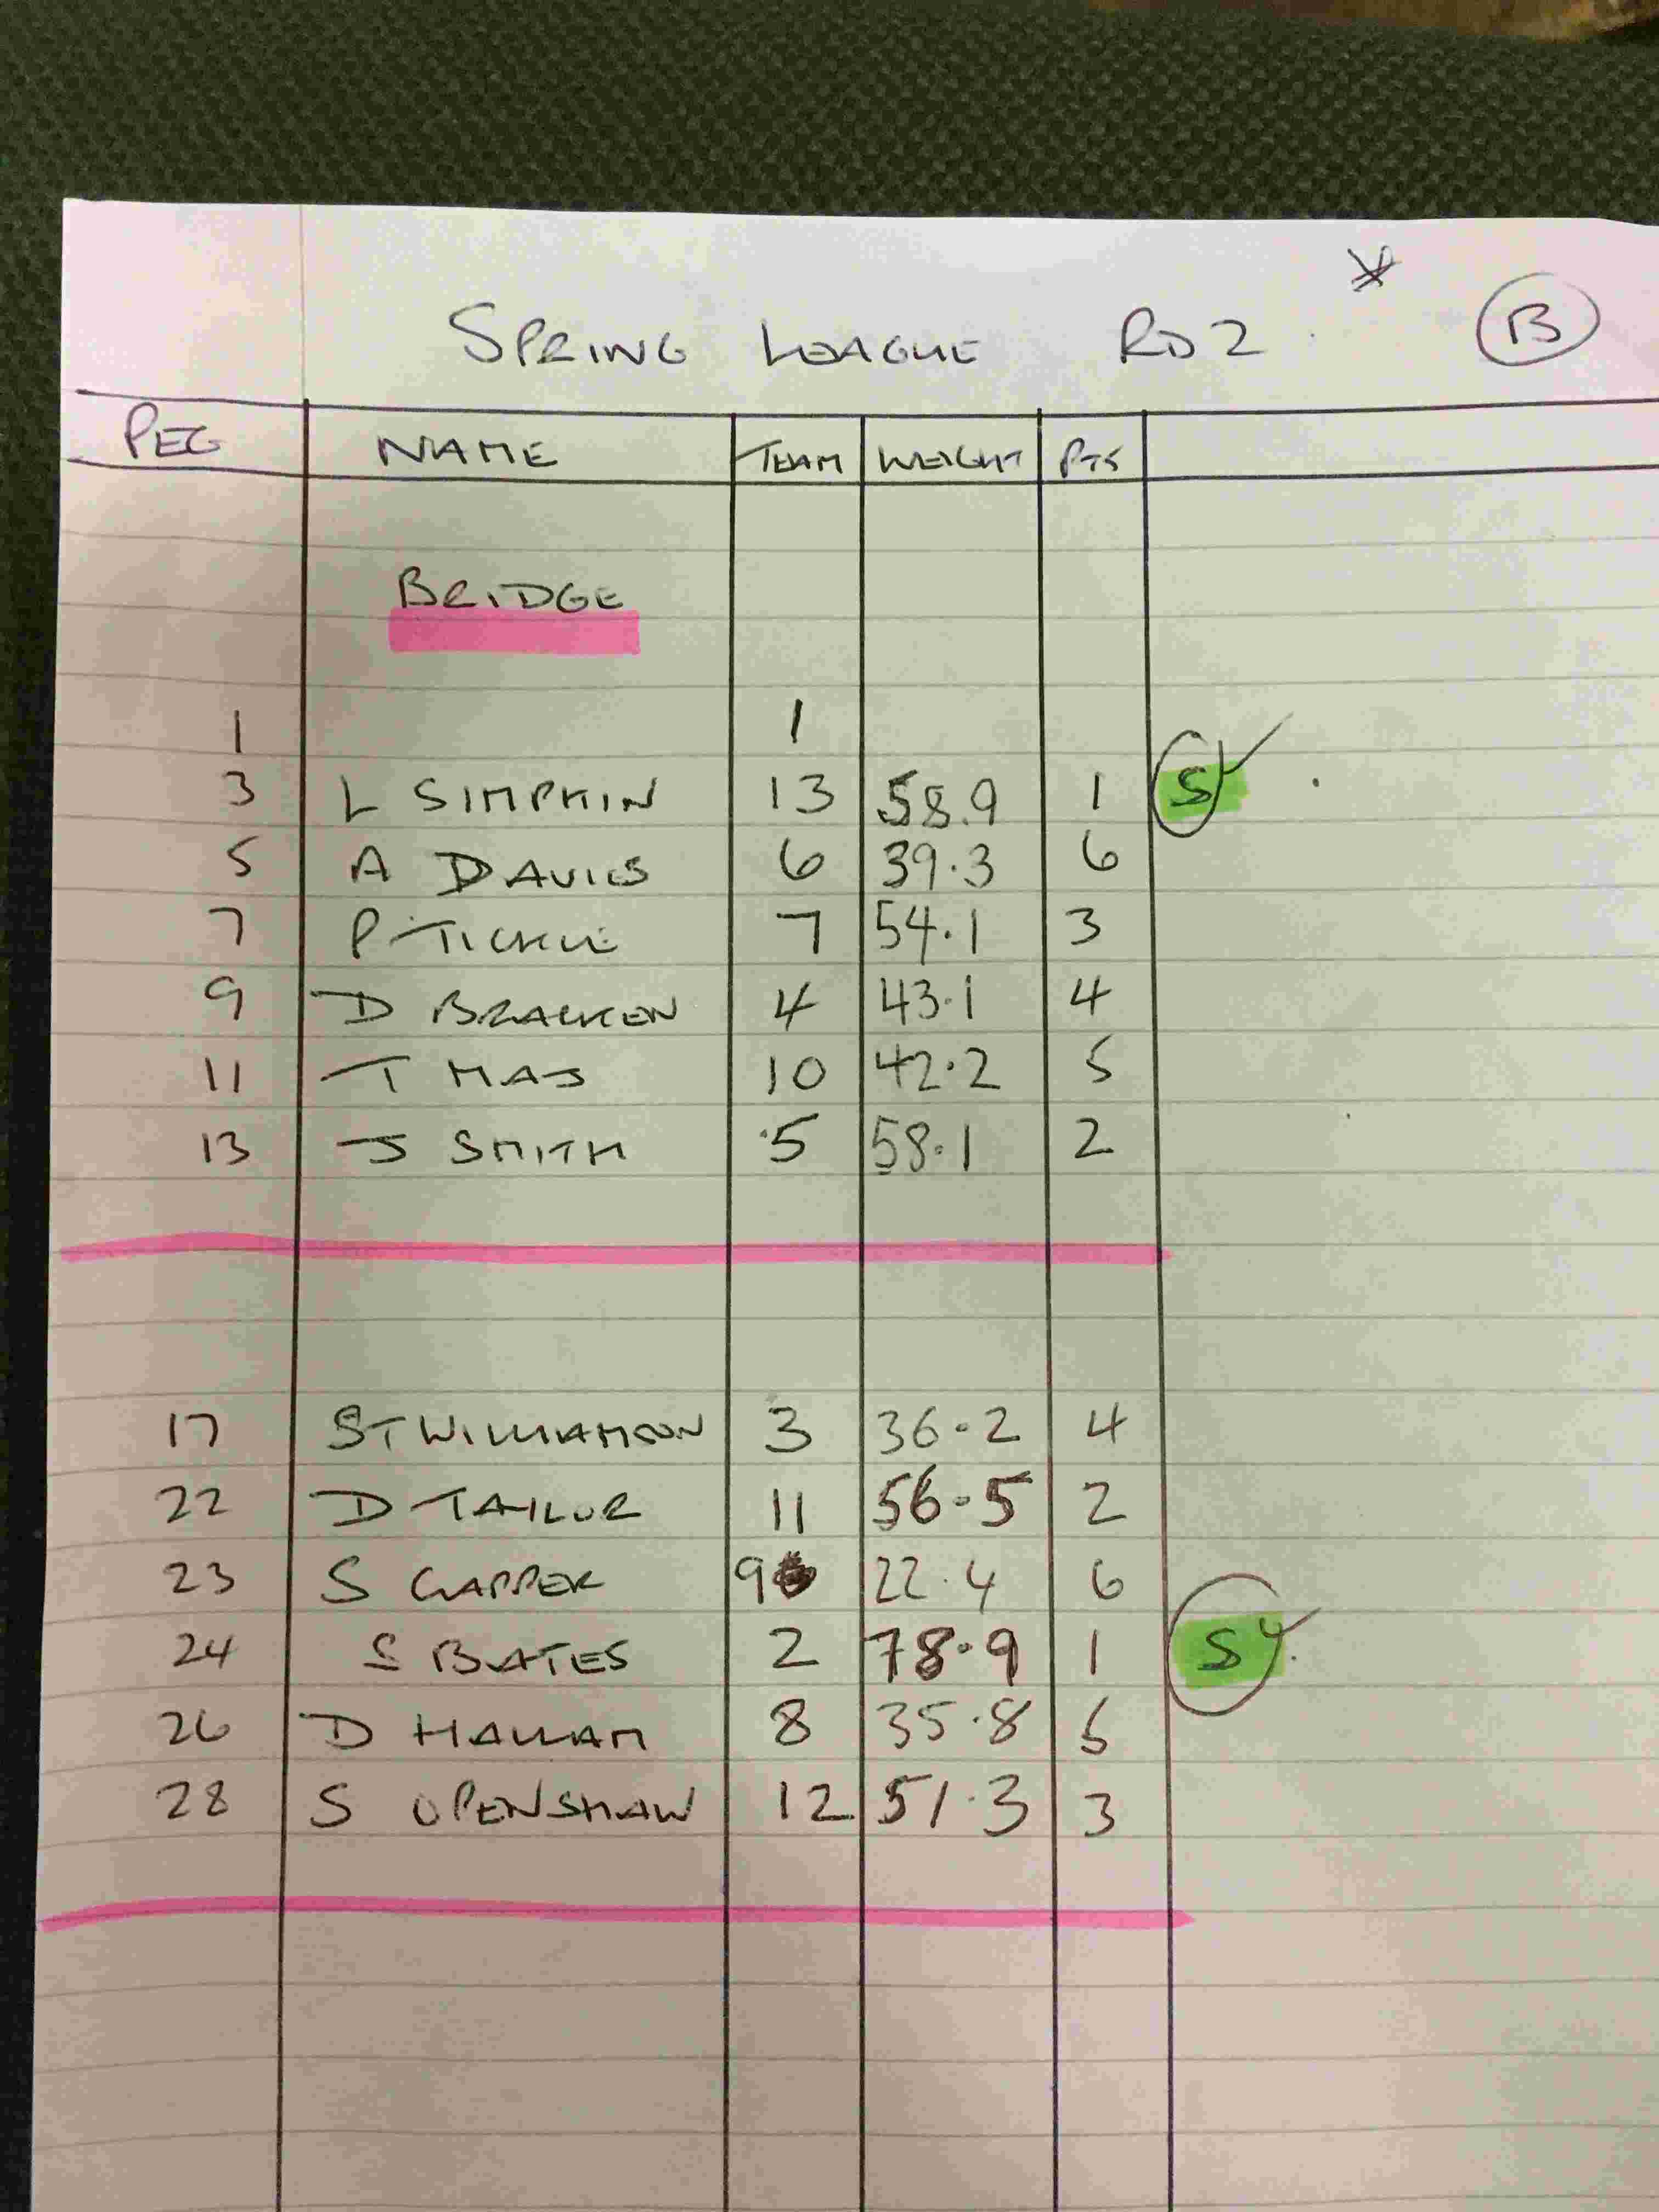 *
SPRING LEAGUE RD 2 B
PEG NAME TEAM WEIGHT PTS
BRIDGE
1 1
3 L SIMPKIN 13 58.9 1 S
5 A DAVIES 6 39.3 6
7 P TICKLE 7 54.1 3
9 D BRACKEN 4 43.1 4
11 T MAJ 10 42.2 5
13 J SMITH 5 58.1 2
17 ST WILLIAMSON 3 36.2 4
22 D TAYLOR 11 56.5 2
23 S CAPPER 9 22.4 6
24 S BATES 2 78.9 1 S
26 D HALLAM 8 35.8 5
28 S OPENSHAW 12 51.3 3